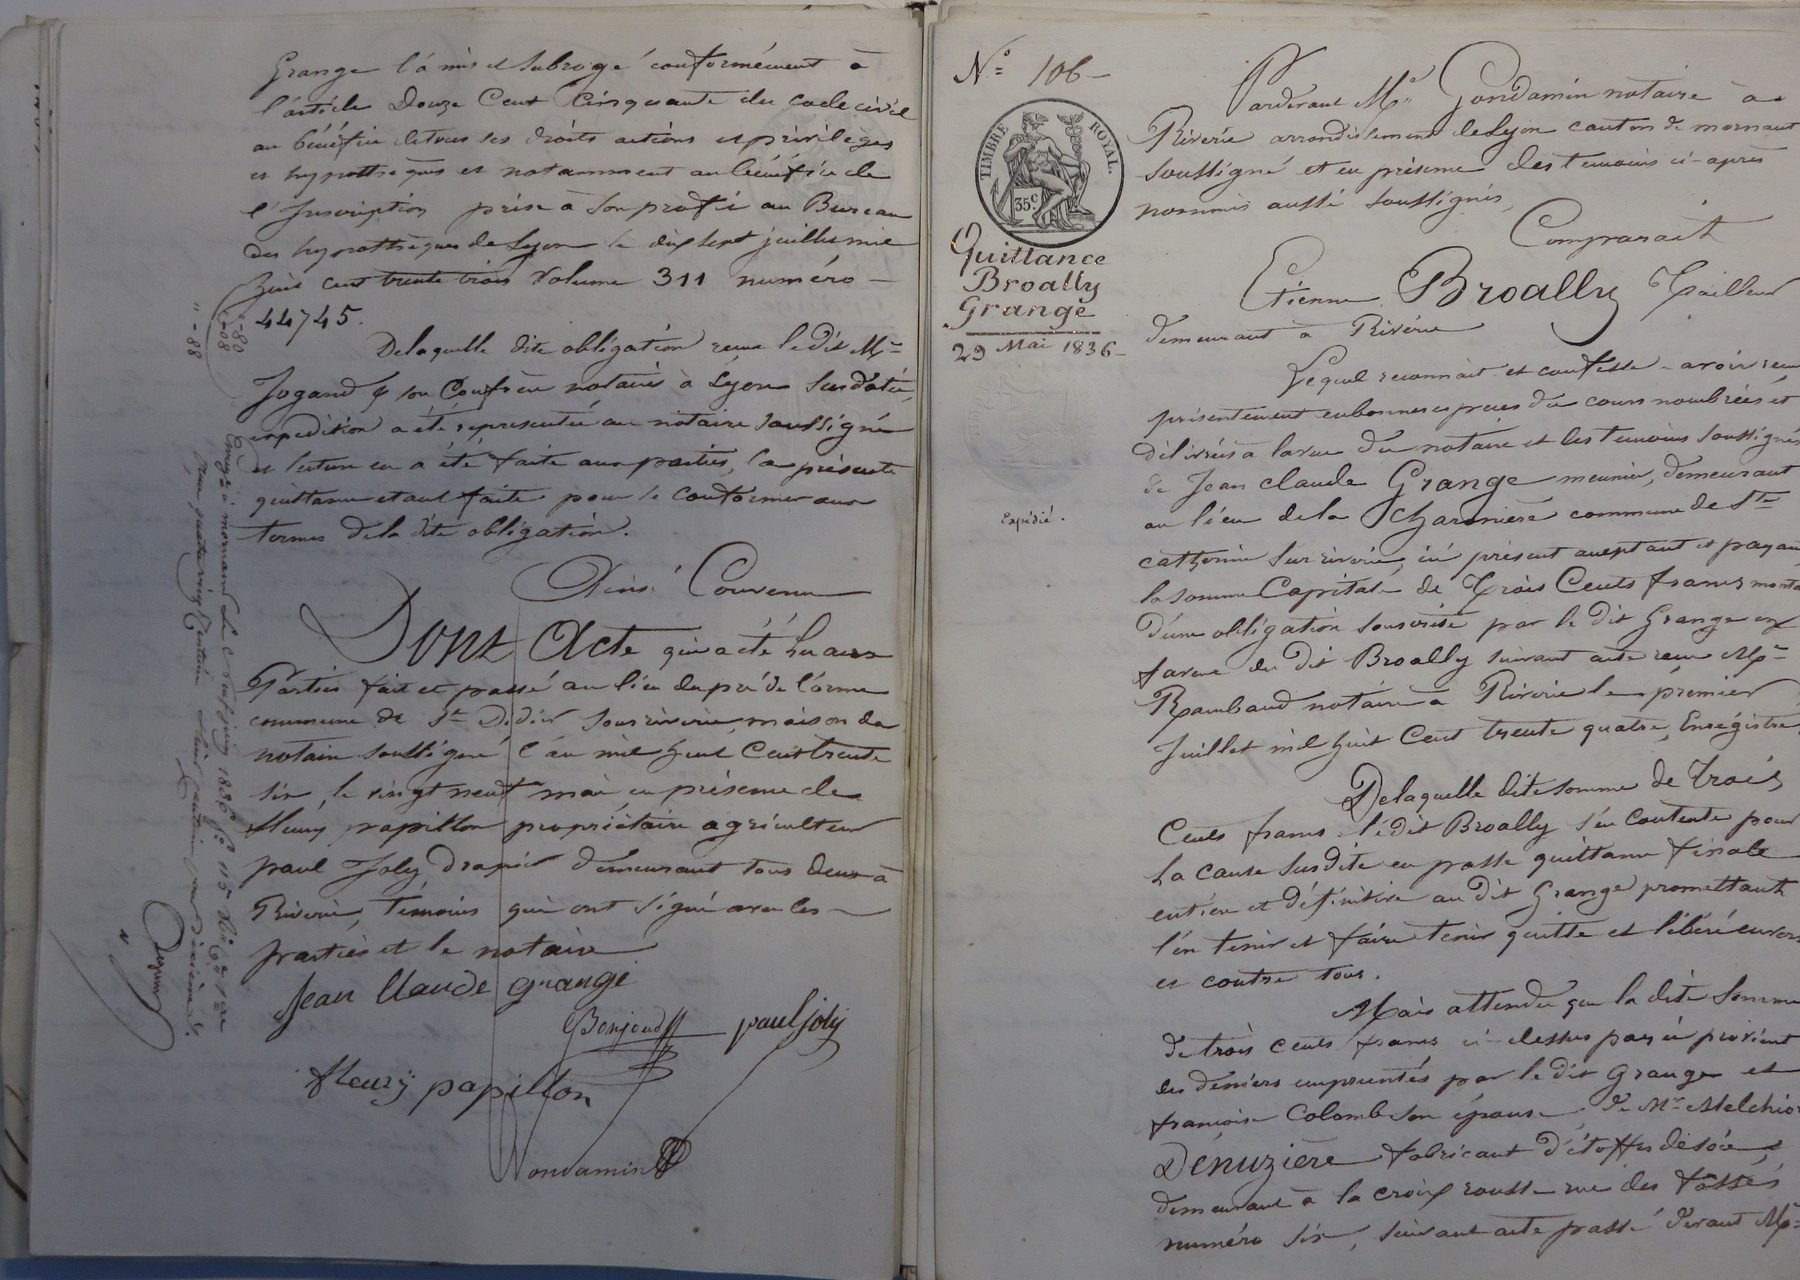 Grange l'a mis et subrogé conformément à
l'article Douze Cent Cinquante du code civil
au bénéfice de tous ses droits actions et privilèges
et hypothèques et notamment au bénéfice de
l'Inscription prise à son profit au Bureau
des hypothèques de Lyon le dix sept juillet mil
huit cent trente trois Volume 311 numéro
44745.
De laquelle dite obligation reçue le dit Me
Jogand & son Confrère notaires à Lyon susdatée,
expédition a été représentée au notaire soussigné
et lecture en a été faite aux parties, la présente
quittance étant faite pour se conformer aux
termes de la dite obligation.
Ainsi Convenu
Dont Acte qui a été lu aux
Parties fait et passé au lieu du pré de l'orme
commune de St Didier sous riverie maison du
notaire soussigné l'an mil huit Cent trente
six, le vingt neuf mai en présence de
fleury papillon propriétaire agriculteur
paul Joly drapier demeurant tous deux à
Riverie, témoins qui ont signé avec les
parties et le notaire
Jean Claude grange
Bonjour paul joly
fleury papillon
Gondamin
Enregé à mornant le juin 1836 fo 115
No 106
TIMBRE ROYAL
35c
Quittance
Broally
Grange
29 Mai 1836
Expédié.
Pardevant Me Gondamin notaire à
Riverie arrondissement de Lyon canton de mornant
soussigné et en présence des témoins ci-après
nommés aussi soussignés,
Comparait
Etienne Broally Tailleur
demeurant à Riverie
Lequel reconnait et confesse avoir reçu
présentement en bonnes espèces du cours nombrées et
délivrées à la vue du notaire et les temoins soussignés
de Jean claude Grange meunier, demeurant
au lieu de la Charonière commune de Ste
catherine sur riverie, ici présent acceptant et payant
la somme Capitale de Trois Cents francs montant
d'une obligation souscrite par le dit Grange en
faveur du dit Broally suivant acte reçu Me
Rambaud notaire à Riverie le premier
Juillet mil huit Cent trente quatre, Enregistré.
De laquelle dite somme de trois
Cents francs le dit Broally s'en Contente pour
la cause susdite en passe quittance finale
entière et définitive au dit Grange promettant
l'en tenir et faire tenir quitte et libéré envers
et contre tous.
Mais attendu que la dite somme
de trois cents francs ci-dessus payée provient
des deniers empruntés par le dit Grange et
françoise Colomb son épouse, de Mr Melchior
Dénuzière fabricant d'étoffes de soie,
demeurant à la croix rousse rue des fossés
numéro six, suivant acte passé devant Me